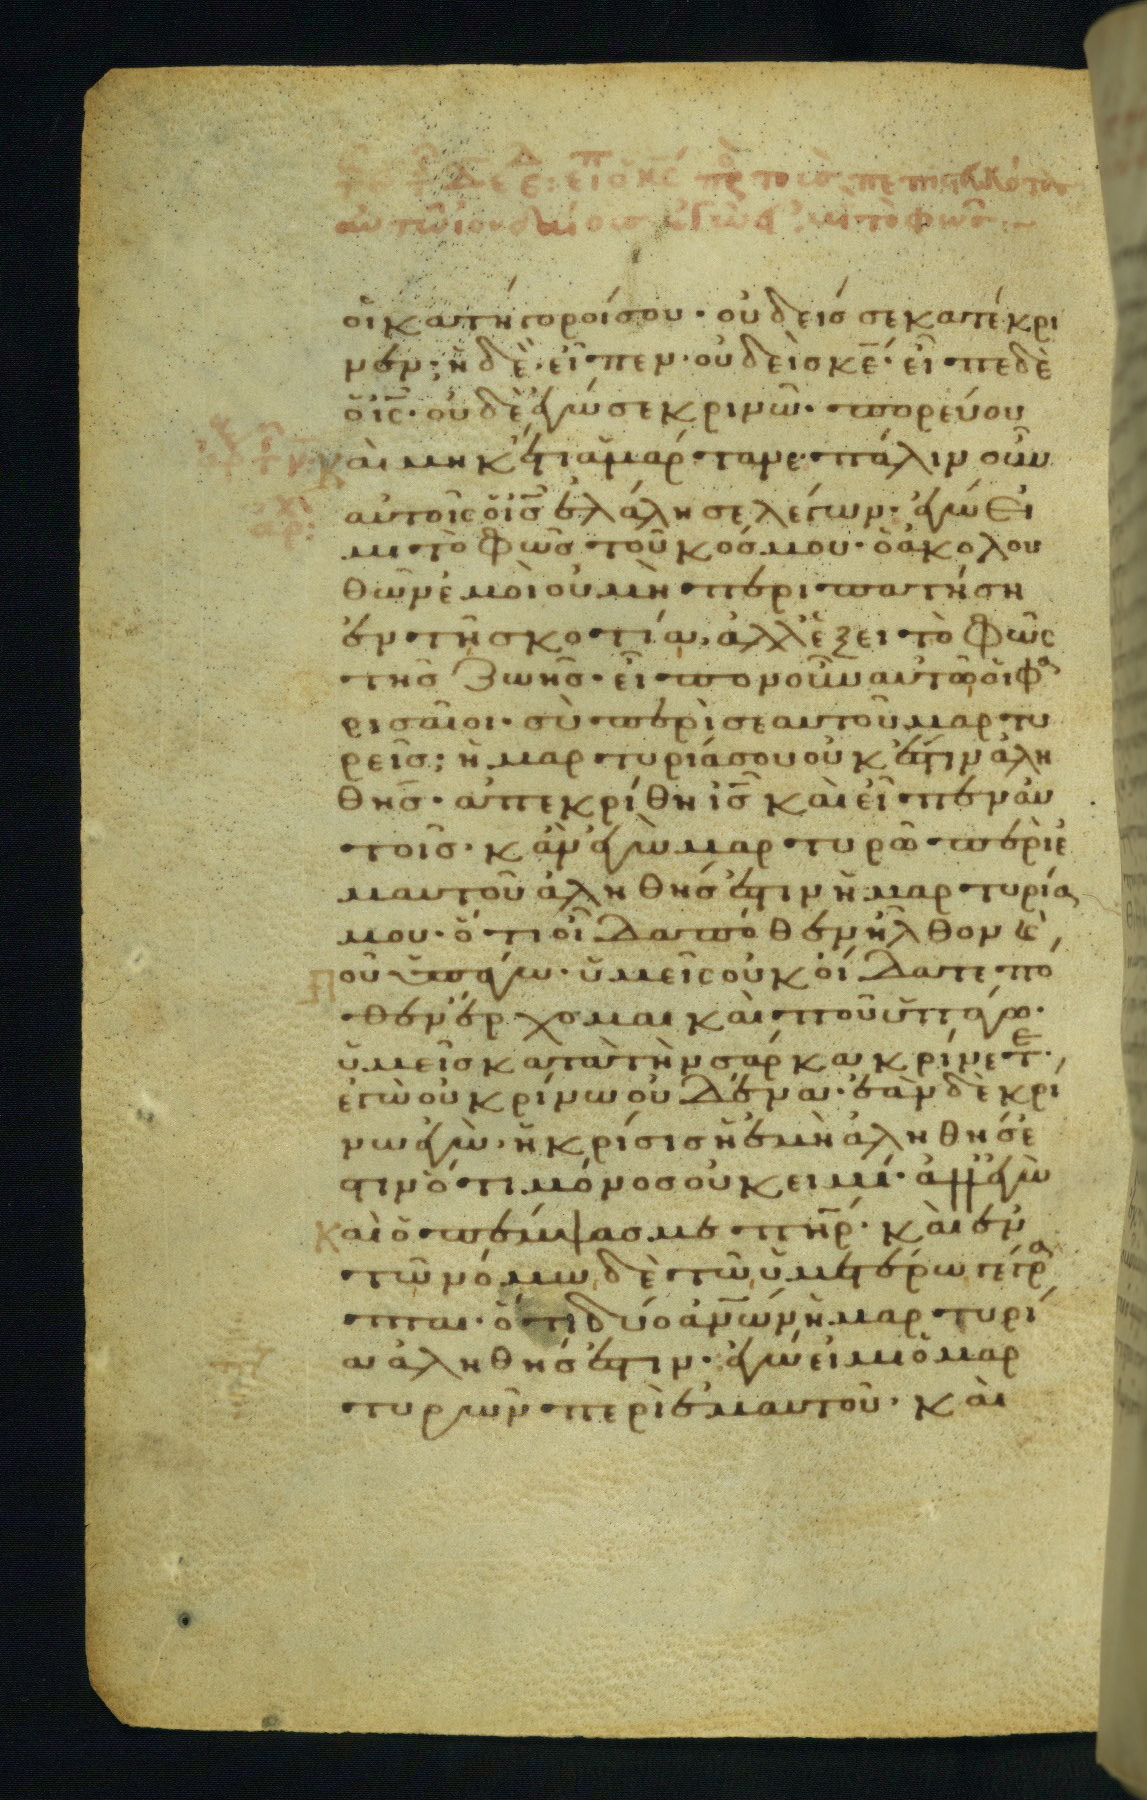 πρ τοὺσ πεπιστευκότασ
αυτῶ ιουδαίουσ ἐγώ εἰμι τὸ φῶσ
οἱ κατήγοροί σου· οὐδείσ σε κατέκρι
νεν; ἡ δὲ εἶπεν· οὐδεὶσ κε̅· εἶπε δὲ
ὁ ις̅· οὐδὲ ἐγώ σε κρινῶ· πορεύου
καὶ μηκέτι ἁμάρτανε· πάλιν οὖν
αὐτοῖς ὁ ισ̅ ἐλάλησε λέγων· ἐγώ εἰ
μι τὸ φῶσ τοῦ κόσμου· ὁ ἀκολου
θῶν ἐμοὶ οὐ μὴ περιπατήση
ἐν τῆ σκοτία, ἀλλ' ἕξει τὸ φῶς
τῆσ ζωῆσ· εἶπον οὖν αὐτῶ οἱ φα
ρισαῖοι· σὺ περὶ σεαυτοῦ μαρτυ
ρεῖσ; ἡ μαρτυρία σου οὐκ ἔστιν ἀλη
θησ· ἀπεκρίθη ισ̅ καὶ εἶπεν αὐ
τοῖσ· κἂν ἐγὼ μαρτυρῶ περὶ ἐ
μαυτοῦ ἀληθήσ ἐστιν ἡ μαρτυρία
μου· ὅτι οἶδα πόθεν ἦλθον καὶ
ποῦ ὑπάγω· ὑμεῖς οὐκ οἴδατε πό
θεν ἔρχομαι καὶ ποῦ ὑπάγω·
ὑμεῖσ κατὰ τὴν σάρκα κρίνετε·
ἐγὼ οὐ κρίνω οὐδένα· ἐὰν δὲ κρί
νω ἐγὼ· ἡ κρίσισ ἡ ἐμὴ ἀληθήσ ἐ
στιν ὅτι μόνοσ οὐκ εἰμί· ἀλλ' ἐγὼ
καὶ ὁ πέμψασ με πηρ̅· καὶ ἐν
τῶ νόμω δὲ τῶ ὑμετέρω γέγρα
πται· ὅτι δύο ἀνω̅ν ἡ μαρτυρί
α ἀληθήσ ἐστιν· ἐγώ εἰμι ὁ μαρ
τυρῶν περὶ ἐμαυτοῦ· καὶ